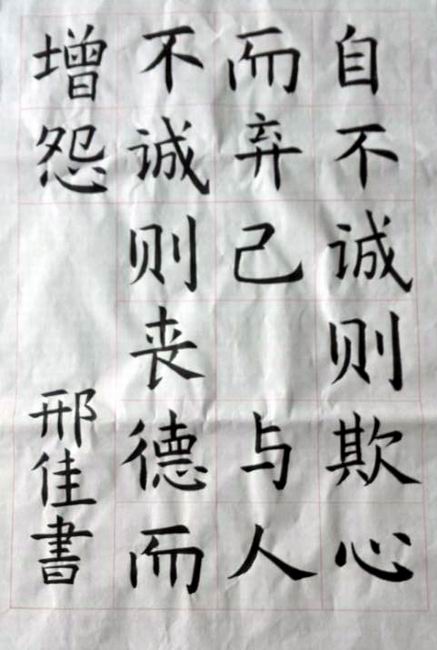 自不诚则欺心
而弃己 与人
不诚则丧德而
增怨
邢佳書